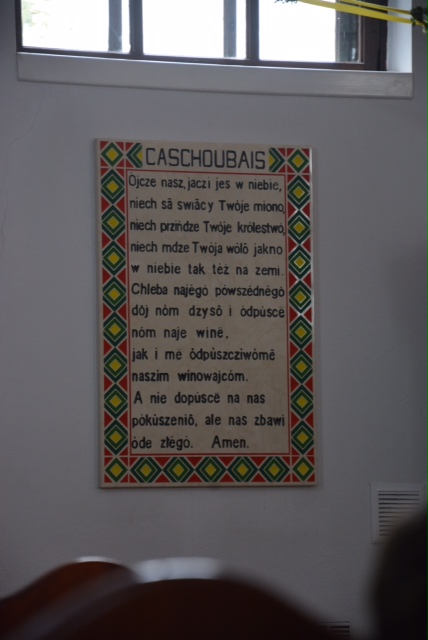 CASCHOUBAIS
Ojcze nasz, jaczi jes w niebie,
niech sã swiãcy Twòje miono,
niech przińdze Twòje królestwò,
niech mdze Twòja wòlô jakno
w niebie tak téż na zemi.
Chleba najégò pòwszédnégò
dôj nóm dzysô i òdpùscë
nóm naje winë,
jak i më òdpùszcziwómë
naszim winowajcóm.
A nie dopùscë na nas
pòkùszeniô, ale nas zbawi
òde złégò. Amen.